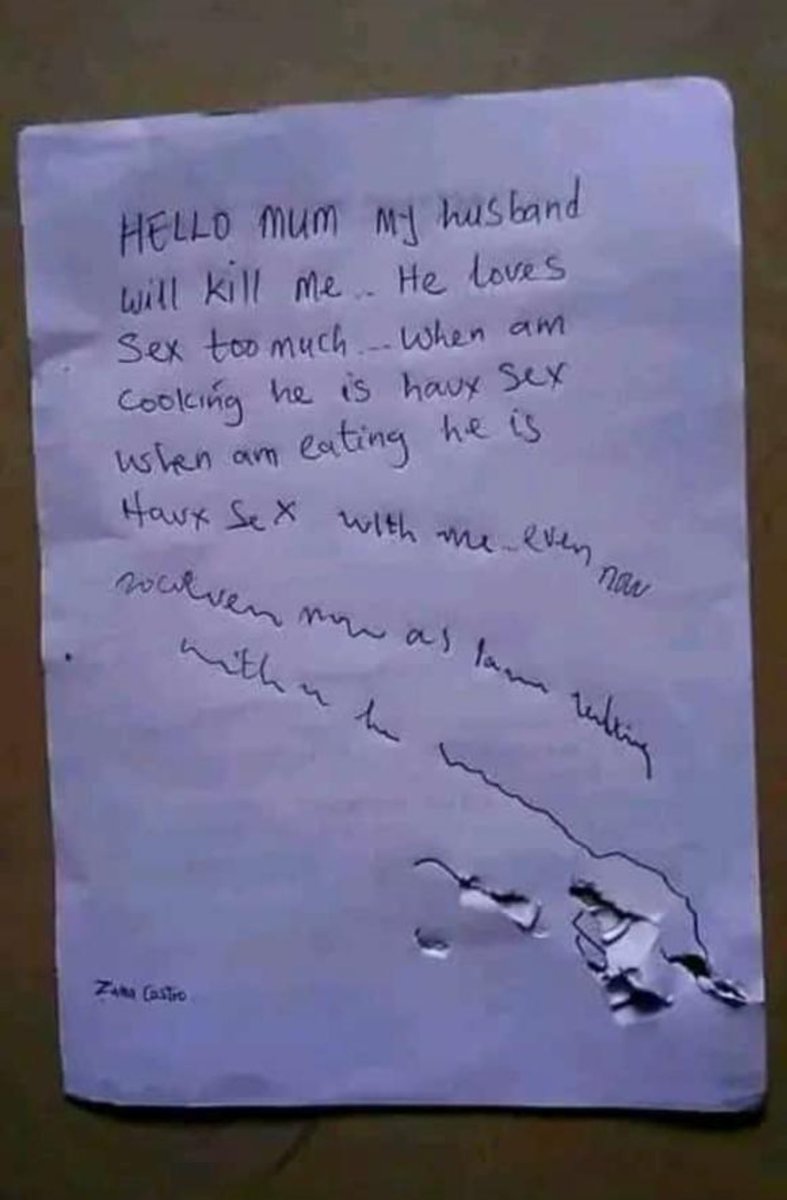 HELLO MUM My husband
will kill me.. He loves
Sex too much... When am
Cooking he is havx Sex
when am eating he is
Havx Sex with me.. even now
even now as I am
with
Zana Castro